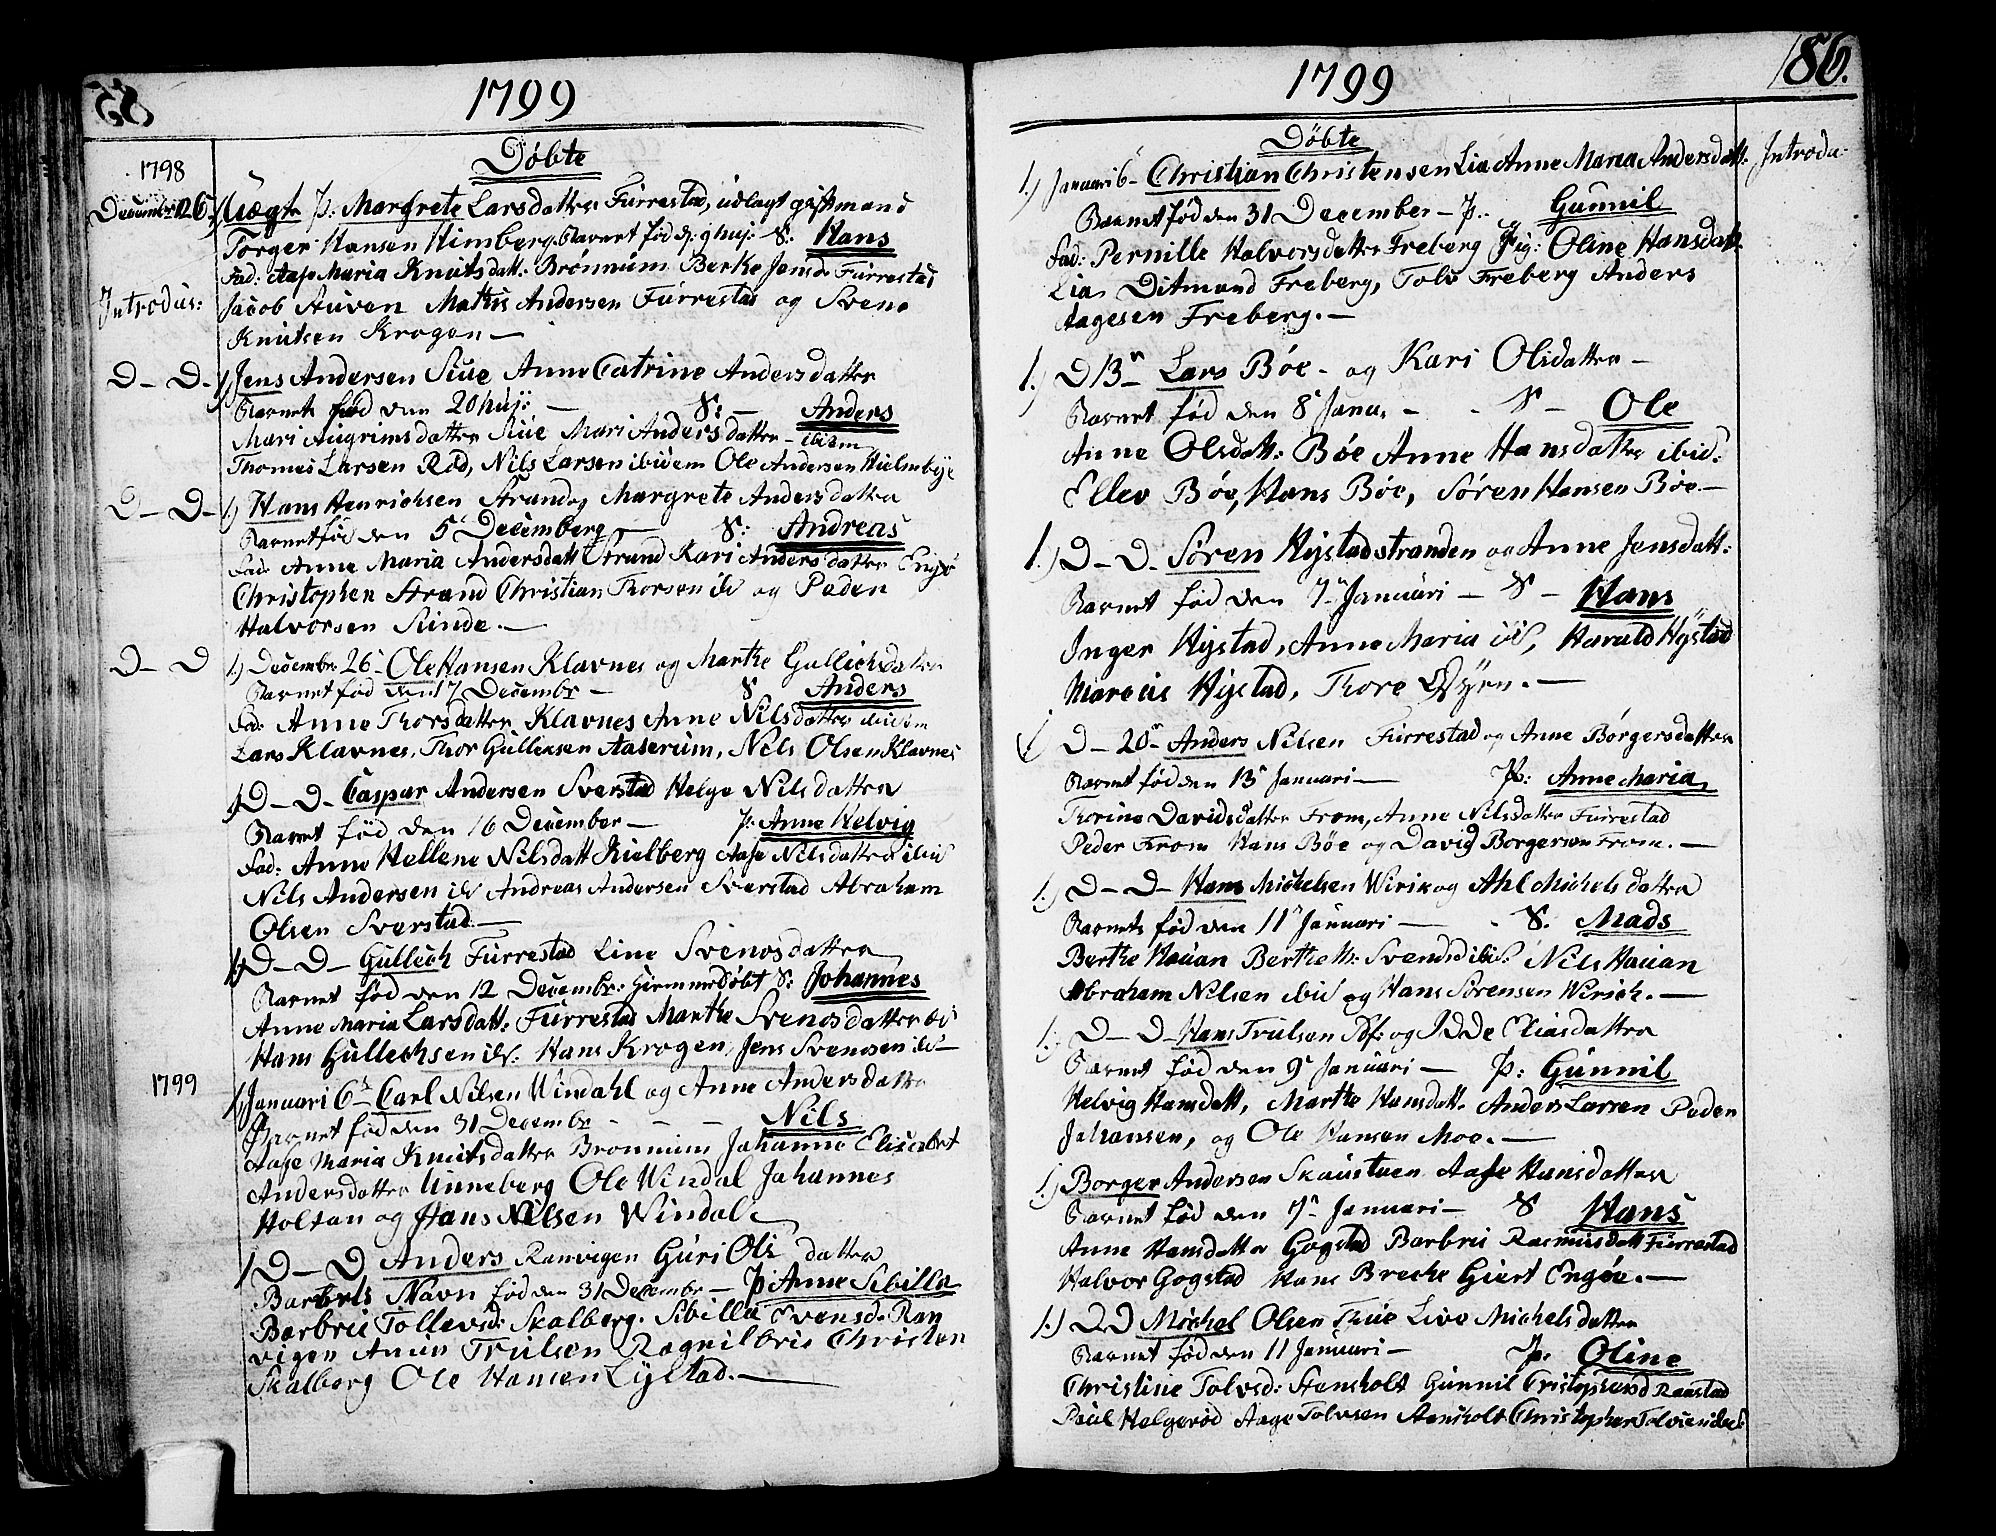 1799
Döbte
1798
December 26 Uægte P: Margrete Larsdatter Furrestad, udlagt giftmand
Torger Hansen Himberg Barnet föd d: 9 huj: S: Hans
Fad: Aase Maria Knutsdatt: Brönnum Berte Jensd: Furrestad
Introdus: Jacob Auven Mattis Andersen Furrestad og Svend
Knutsen Krogen —
D — D — 1) Jens Andersen Siue Anne Catrine Andersdatter
Barnet föd den 20 huj: — S: — Anders
Mari Augrimsdatter Siue Mari Andersdatter — ibidem
Thomes Larsen Röd, Nils Larsen ibidem Ole Andersen Hielmbye
D — D — 1) Hans Henrichsen Strand og Margrete Andersdatter
Barnet föd den 5 December — S: Andreas
Fad: Anne Maria Andersdatt Strand Kari Andersdatter Engö
Christopher Strand Christian Thorsen ib og Peder
Halvorsen Sunde. —
D — D 1) Decembr 26 — Ole Hansen Klavnes og Marthe Gullichsdatter
Barnet föd den 17 Decembr — S Anders
Fad: Anne Thorsdatter Klavnes Anne Nilsdatter ibidem
Lars Klavnes, Thor Gullichsen Aaserum, Nils Olsen Klavnes
1) D — D — Caspar Andersen Sverstad Helge Nilsdatter
Barnet föd den 16 December — P: Anne Helvig
Fad: Anne Hellene Nilsdatt Kielberg Aase Nilsdatter ibid
Nils Andersen ib Andreas Andersen Sverstad Abraham
Olsen Sverstad —
1) D — D — Gullich Furrestad Line Svendsdatter
Barnet föd den 12 Decembr: Hiemmedöbt S: Johannes
Anne Maria Larsdatt: Furrestad Marthe Svendsdatter ib
Hans Gullichsen ib. Hans Krogen, Jens Svendsen ib —
1799 1) Januari 6 — Carl Nilsen Windahl og Anne Andersdatter
Barnet föd den 31 Decembr — — — Nils
Aase Maria Knutsdatter Bronnum Johanne Elisabet
Andersdatter Unneberg Ole Windal Johannes
Holtan og Hans Nilsen Windal
1) D — D Anders Ranvigen Guri Olsdatter
Barnets Navn föd den 31 Decembr — P: Anne Sibilla
Barbrie Tollevsd: Skalberg. Sibilla Evensd. Ran
vigen Amun Trulsen Christen
Skalberg Ole Hansen Lystad. —
1799
186.
Döbte
1) Januari 6 — Christian Christensen Lia Anne Maria Andersdatt: Introdu:
Barnet föd den 31 December — P: Gunnil
Fad: Pernille Halvorsdatter Freberg Pig: Oline Hansdatt
Lia Ditmand Freberg, Tolv Freberg Anders
Aagesen Freberg. —
1.) D 13 — Lars Böe — og Kari Olsdatter —
Barnet föd den 8 Janu: — S — Ole
Anne Olsdatt: Böe Anne Hansdatter ibid:
Ellev Böe, Hans Böe, Sören Hansen Böe. —
1.) D — D. Sören Hystadstranden og Anne Jensdatt:
Barnet föd den 7 Januari — S — Hans
Inger Hystad, Anne Maria ib, Harald Hystad
Marcus Hystad, Thore Öyen. —
1) D — 20 — Anders Nilsen Furrestad og Anne Börgersdatter
Barnet föd den 13 Januari — P: Anne Maria
Thorine Davidsdatter From, Anne Nilsdatter Furrestad
Peder From Hans Böe og David Borgersen From. —
1.) D — D — Hans Michelsen Wirik og Ahl Michelsdatter
Barnet föd den 11 Januari — S. Mads
Berthe Hauan Berthe M: Svendsd ibid Nils Hauan
Abraham Nilsen ibid og Hans Sörensen Wirich. —
1.) D — D — Hans Trulsen og Idde Eliasdatter
Barnet föd den 9 Januari — P: Gunnil
Helvig Hansdatt, Marthe Hansdatt. Anders Larsen Peder
Johansen, og Ole Hansen Moe. —
1.) Borger Andersen Skaustuen Aase Hansdatter
Barnet föd den 7 Januari — S Hans
Anne Hansdatter Gogstad Barbrie Rasmusdatt Furrestad
Halvor Gogstad Hans Brecke Giert Engöe. —
1.) D D Michel Olsen Thue Live Michelsdatter
Barnet föd den 11 Januari — P: Oline
Christine Tolvsd: Stensholt Gunnil Cristophersd Raastad
Paul Helgeröd Aage Tolvsen Stensholt Christopher Tolvsen ibid: